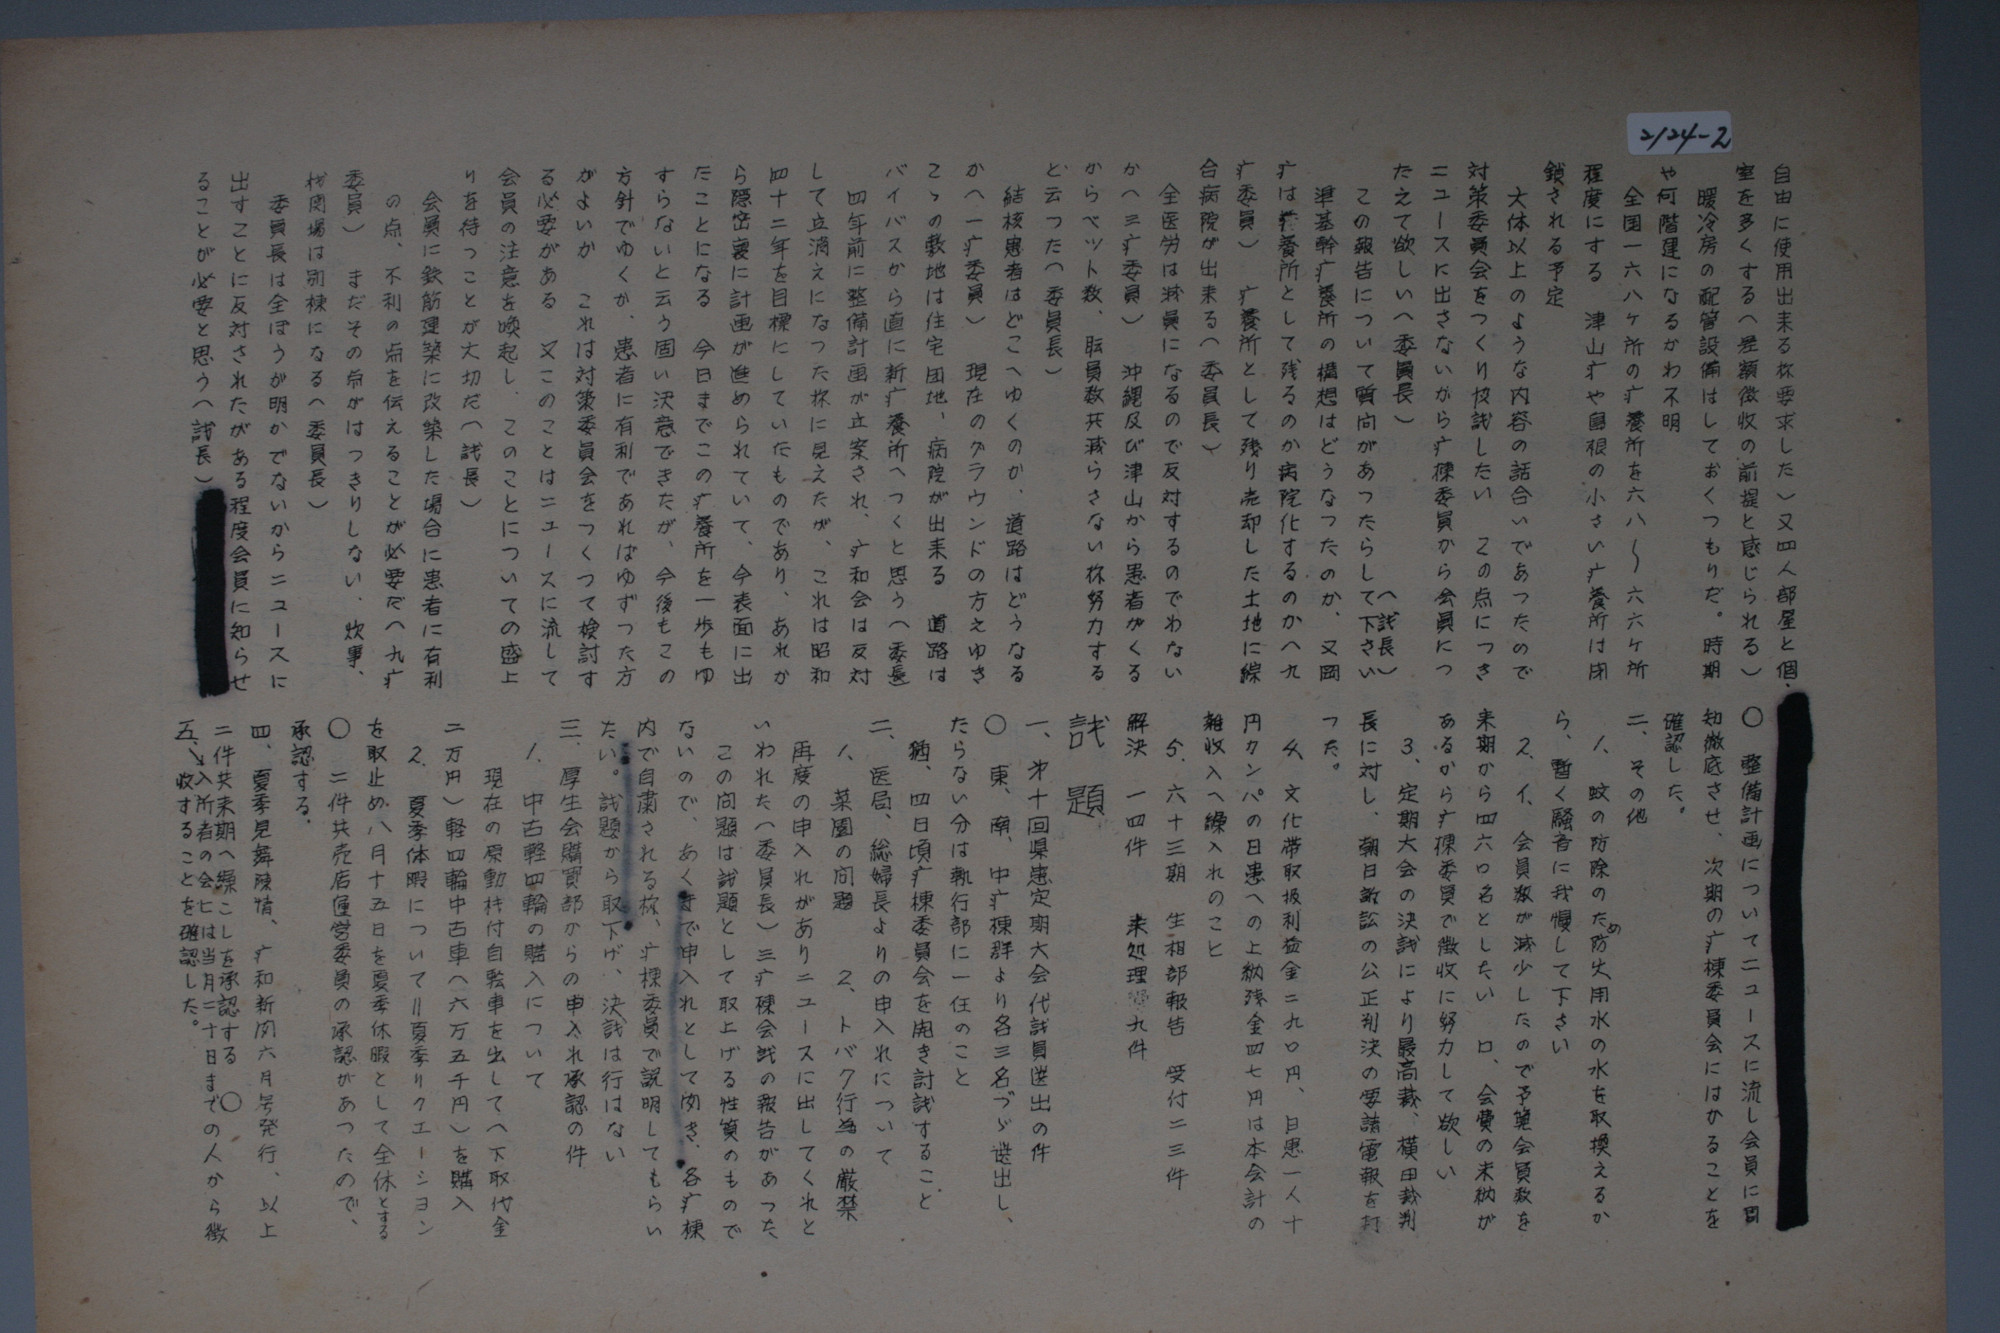 2124-2
自由に使用出来る様要求した)又四人部屋と個
室を多くする(差額徴収の前提と感じられる)
暖冷房の配管設備はしておくつもりだ。時期
や何階建になるかわ不明
全国一六八ヶ所の疒養所を六八〜六六ヶ所
程度にする 津山疒や島根の小さい疒養所は閉
鎖される予定
大体以上のような内容の話合いであつたので
対策委員会をつくり検討したい この点につき
ニュースに出さないから疒棟委員から会員につ
たえて欲しい(委員長)
この報告について質問があつたらして下さい
(議長)
準基幹疒養所の構想はどうなつたのか、又岡
疒は疒養所として残るのか病院化するのか(九
疒委員) 疒養所として残り売却した土地に綜
合病院が出来る(委員長)
全医労は減員になるので反対するのでわない
か(三疒委員) 沖縄及び津山から患者がくる
からベット数、転員数共減らさない様努力する
と云つた(委員長)
結核患者はどこへゆくのか、道路はどうなる
か(一疒委員) 現在のグラウンドの方えゆき
こゝの敷地は住宅団地、病院が出来る 道路は
バイパスから直に新疒養所へつくと思う(委員長
四年前に整備計画が立案され、疒和会は反対
して立消えになつた様に見えたが、これは昭和
四十二年を目標にしていたものであり、あれか
ら隠密裏に計画が進められていて、今表面に出
たことになる 今日までこの疒養所を一歩もゆ
すらないと云う固い決意できたが、今後もこの
方針でゆくか、患者に有利であればゆずつた方
がよいか これは対策委員会をつくつて検討す
る必要がある 又このことはニュースに流して
会員の注意を喚起し、このことについての盛上
りを待つことが大切だ(議長)
会員に鉄筋建築に改築した場合に患者に有利
の点、不利の点を伝えることが必要だ(九疒
委員) まだその点がはつきりしない、炊事、
機関場は別棟になる(委員長)
委員長は全ぼうが明かでないからニュースに
出すことに反対されたがある程度会員に知らせ
ることが必要と思う(議長)
○ 整備計画についてニュースに流し会員に周
知徹底させ、次期の疒棟委員会にはかることを
確認した。
二、その他
1、蚊の防除のため防火用水の水を取換えるか
ら、暫く騒音に我慢して下さい
2、イ、会員数が減少したので予算会員数を
来期から四六〇名としたい ロ、会費の未納が
あるから疒棟委員で徴収に努力して欲しい
3、定期大会の決議により最高裁、横田裁判
長に対し、朝日訴訟の公正判決の要請電報を打
つた。
4、文化帯取扱利益金二九〇円、日患一人十
円カンパの日患への上納残金四七円は本会計の
雑収入へ繰入れのこと
5、六十三期 生相部報告 受付二三件
解決 一四件 未処理 九件
議題
一、第十回県患定期大会代議員選出の件
○ 東、南、中疒棟群より各三名づゝ選出し、
たらない分は執行部に一任のこと
猶、四日頃疒棟委員会を開き討議すること
二、医局、総婦長よりの申入れについて
1、菜園の問題 2、トバク行為の厳禁
再度の申入れがありニュースに出してくれと
いわれた(委員長)三疒棟会議の報告があつた
この問題は議題として取上げる性質のもので
ないので、あくまで申入れとして聞き、各疒棟
内で自粛される様、疒棟委員で説明してもらい
たい。議題から取下げ、決議は行はない
三、厚生会購買部からの申入れ承認の件
1、中古軽四輪の購入について
現在の原動機付自転車を出して(下取代金
二万円)軽四輪中古車(六万五千円)を購入
2、夏季休暇について=夏季リクエーション
を取止め八月十五日を夏季休暇として全休とする
○ 二件共売店運営委員の承認があつたので、
承認する。
四、夏季見舞陳情、疒和新聞六月号発行、以上
二件共来期へ繰こしを承認する ○
五、入所者の会ヒは当月二十日までの人から徴
収することを確認した。